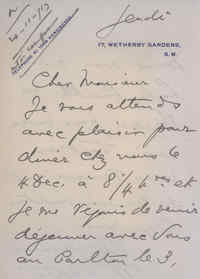 Jeudi
17, WETHERBY GARDENS,
S.W.
Cher Monsieur
Je vous attends
avec plaisir pour
diner chez nous le
4 Dec. à 8 1/4 hres et
je me réjouis de venir
déjeuner avec vous
au Carlton le 3.